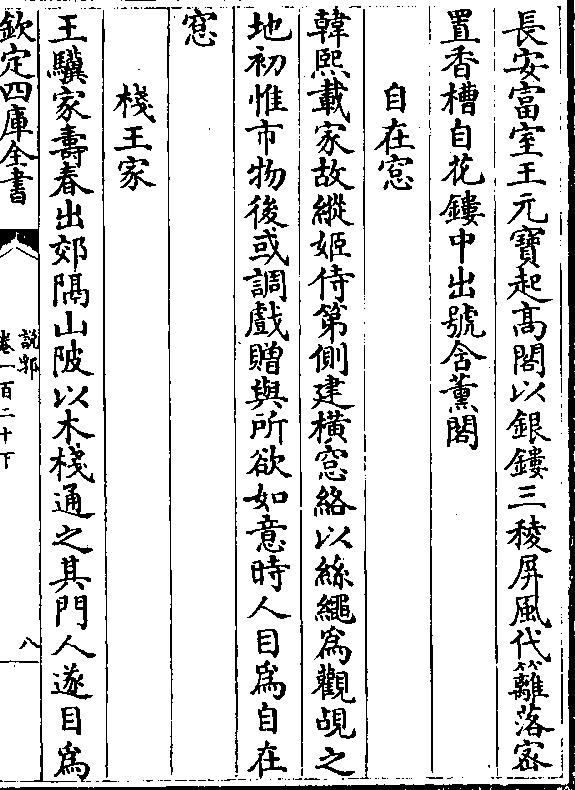 長安富室王元寶起高閣以銀鏤三稜屏風代籬落密
置香槽自花鏤中出號含薰閣
自在窓
韓熙載家故縱姬侍第側建橫窓絡以絲繩為觀覘之
地初惟市物後或調戲贈與所欲如意時人目為自在
窓
棧王家
王驥家壽春出郊隅山陂以木棧通之其門人遂目為
欽定四庫全書
說郛
卷一百二十下
八